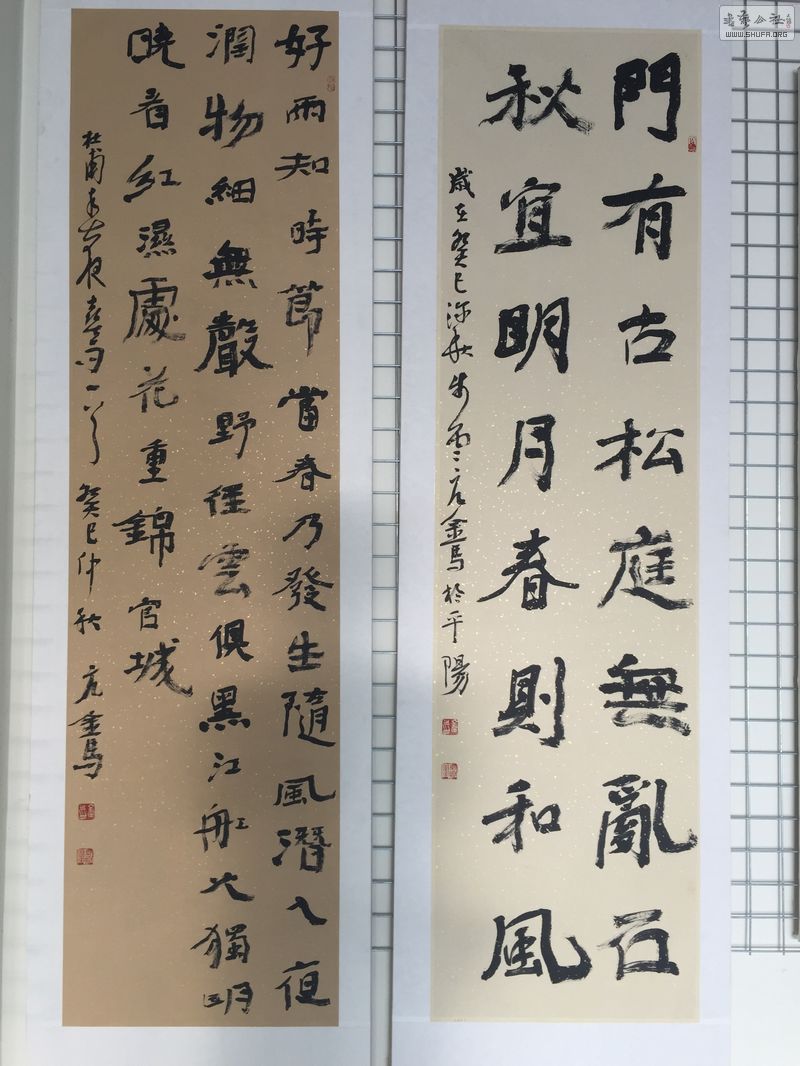 書法公社
WWW.SHUFA.ORG
門有古松庭無亂石
秋宜明月春則和風
歲在癸巳深秋 亢金馬於平陽
好雨知時節當春乃發生隨風潛入夜
潤物細無聲野徑雲俱黑江舡火獨明
曉看紅濕處花重錦官城
杜甫春夜喜雨一首 癸巳仲秋 亢金馬